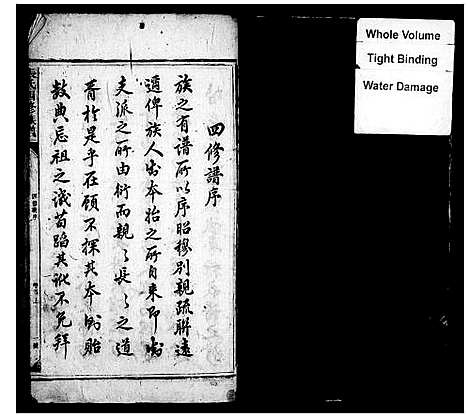 四修譜序
族之有譜所以序昭穆別親疏聯遠
邇俾族人知本始之所自來即知
支派之所由衍而親〻長〻之道
胥於是乎在顧不探其本則貽
數典忘祖之誚苟蹈其訛不免拜
Whole Volume
Tight Binding
Water Damage